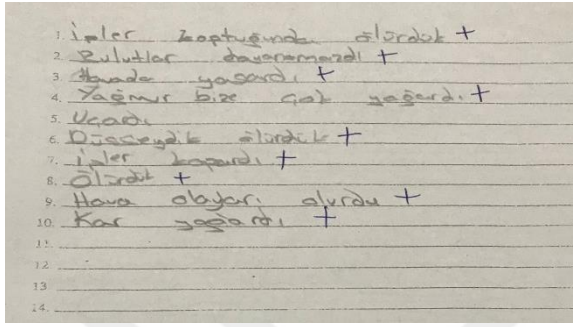 1. İpler koptuğunda ölürdük +
2. Bulutlar dayanamazdı +
3. Havada yaşardı +
4. Yağmur bize çok yağardı +
5. Uçardı
6. Düşseydik ölürdük +
7. İpler kopardı +
8. Ölürdük +
9. Hava olayları olurdu +
10. Kar yağardı +
11.
12.
13.
14.